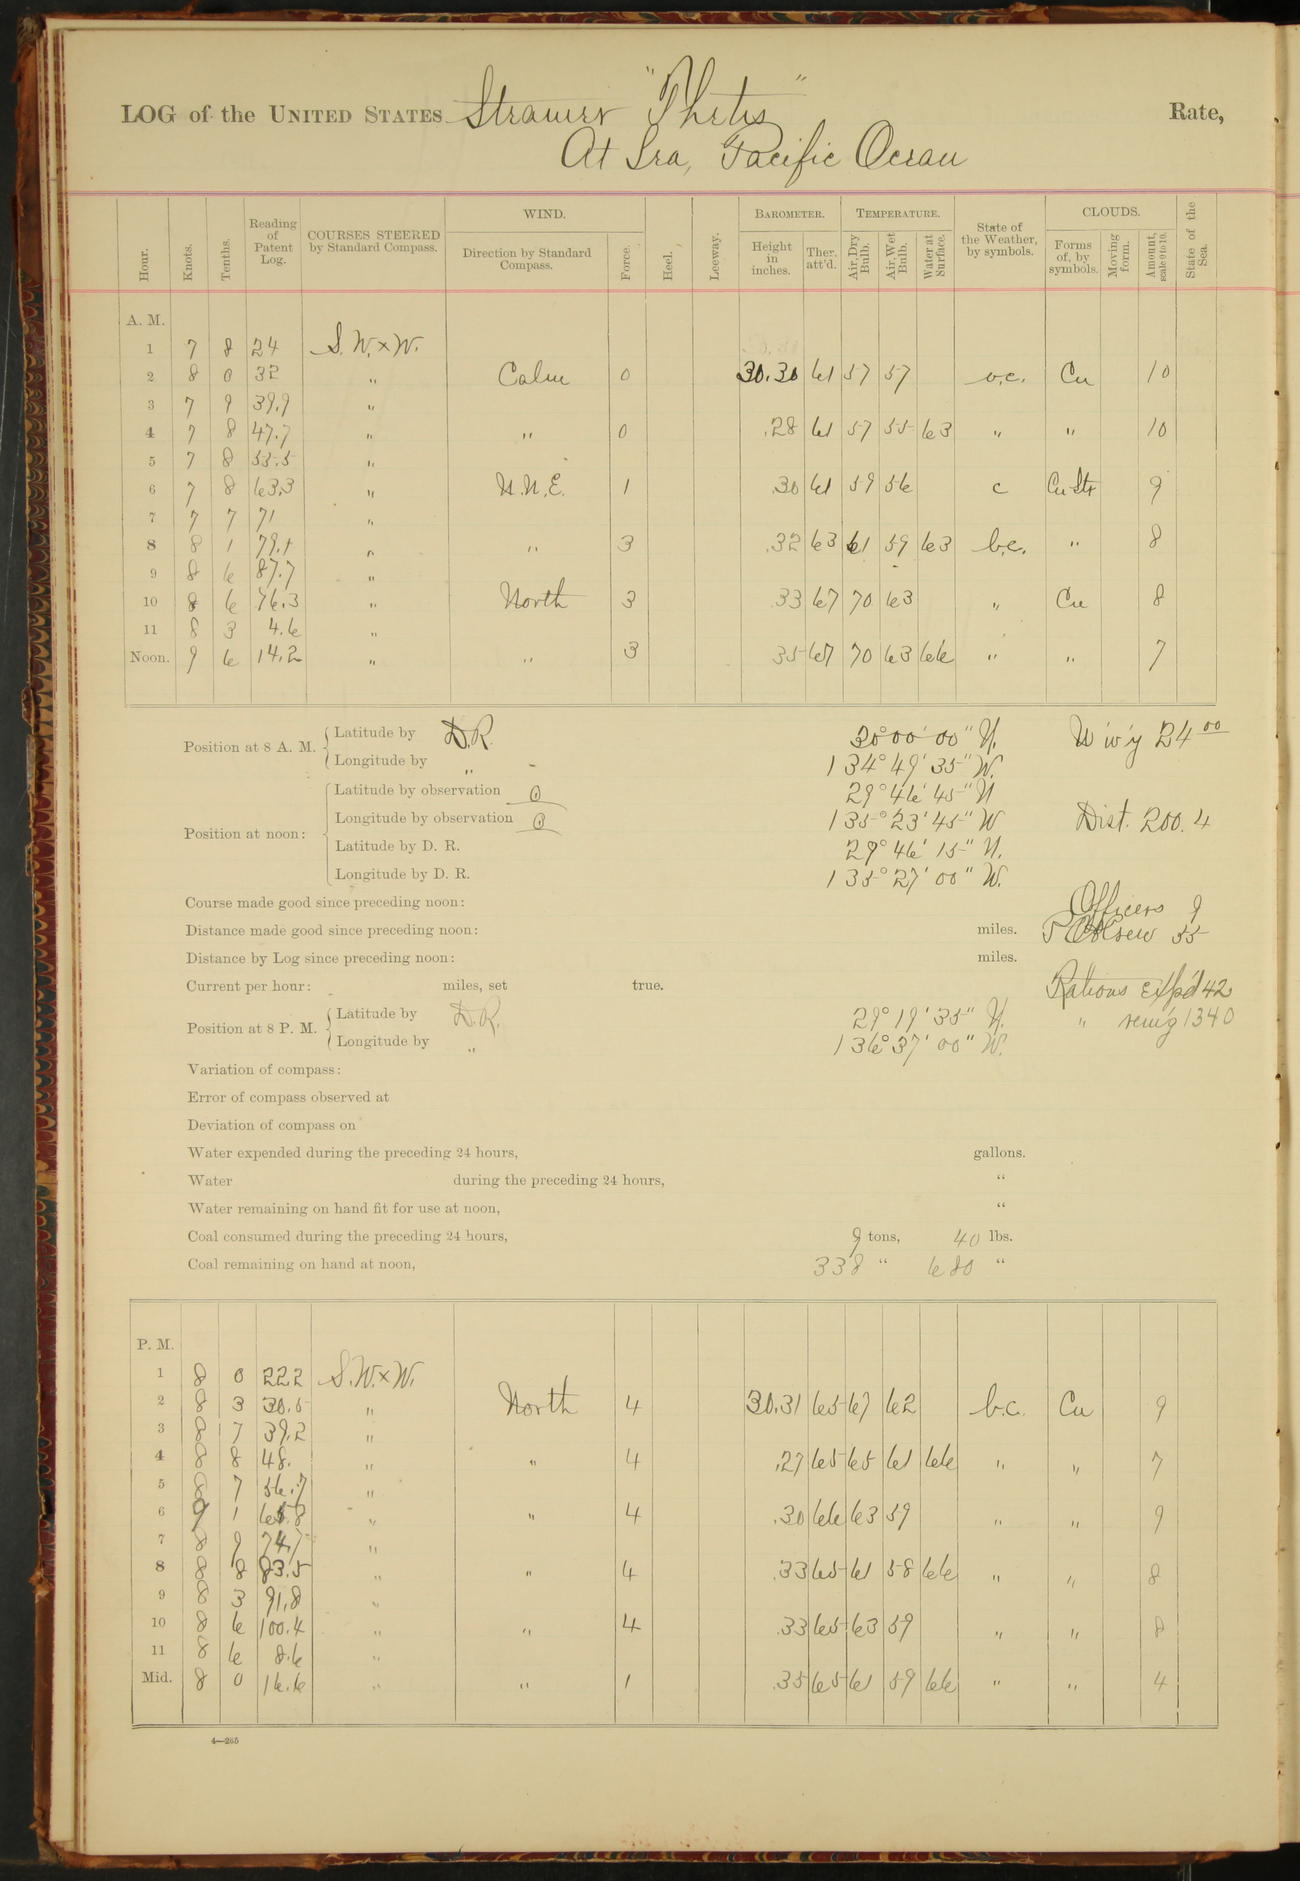 LOG of the UNITED STATES Steamer "Thetis" Rate,
At Sea, Pacific Ocean
Hour. Knots. Tenths. Reading of Patent Log. COURSES STEERED by Standard Compass. WIND. Direction by Standard Compass. Force. Heel. Leeway. BAROMETER. Height in inches. Ther. att'd. TEMPERATURE. Air, Dry Bulb. Air, Wet Bulb. Water at Surface. State of the Weather, by symbols. CLOUDS. Forms of, by symbols. Moving form. Amount, scale 0 to 10. State of the Sea.
A. M.
1 7 8 24 S.W.xW.
2 8 0 32 " Calm 0 30.30 61 57 57 o.c. Cu 10
3 7 9 39.9 "
4 7 8 47.7 " " 0 .28 61 57 55 63 " " 10
5 7 8 55.5 "
6 7 8 63.3 " N.N.E. 1 .30 61 59 56 c Cu Str 9
7 7 7 71 "
8 8 1 79.1 " " 3 .32 63 61 59 63 b.c. " 8
9 8 6 87.7 "
10 8 6 96.3 " North 3 .33 67 70 63 " Cu 8
11 8 3 4.6 "
Noon. 9 6 14.2 " " 3 35 67 70 63 66 " " 7
Position at 8 A. M. Latitude by D.R. 30° 00' 00" N. U'w'y 24 00
Longitude by " 134° 49' 35" W.
Position at noon: Latitude by observation 29° 46' 45" N
Longitude by observation 135° 23' 45" W Dist. 200.4
Latitude by D. R. 29° 46' 15" N.
Longitude by D. R. 135° 27' 00" W.
Course made good since preceding noon: Officers 9
Distance made good since preceding noon: miles. Crew 35
Distance by Log since preceding noon: miles.
Current per hour: miles, set true. Rations Exp'd 42
Position at 8 P. M. Latitude by D.R. 29° 19' 35" N. " rem'g 1340
Longitude by " 136° 37' 00" W.
Variation of compass:
Error of compass observed at
Deviation of compass on
Water expended during the preceding 24 hours, gallons.
Water during the preceding 24 hours, "
Water remaining on hand fit for use at noon, "
Coal consumed during the preceding 24 hours, 9 tons, 40 lbs.
Coal remaining on hand at noon, 338 " 680 "
P. M.
1 8 0 22.2 S.W.xW.
2 8 3 30.5 " North 4 30.31 65 67 62 b.c. Cu 9
3 8 7 39.2 "
4 8 8 48. " " 4 .29 65 65 61 66 " " 7
5 8 7 56.7 "
6 9 1 65.8 " " 4 .30 66 63 59 " " 9
7 8 9 74.7 "
8 8 8 83.5 " " 4 .33 65 61 58 66 " " 8
9 8 3 91.8 "
10 8 6 100.4 " " 4 .33 65 63 59 " " 8
11 8 6 8.6 "
Mid. 8 0 16.6 " " 1 .35 65 61 59 66 " " 4
4—265